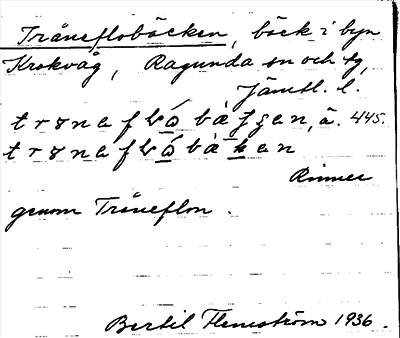 Tråneflobäcken, bäck i byn
Krokvåg, Ragunda sn och tg,
Jämtl. l.
trønaflọ́ bàʃʃen, ä. 445.
trønaflọ́bàkan
Rinner
genom Tråneflon.
Bertil Flemström 1936.